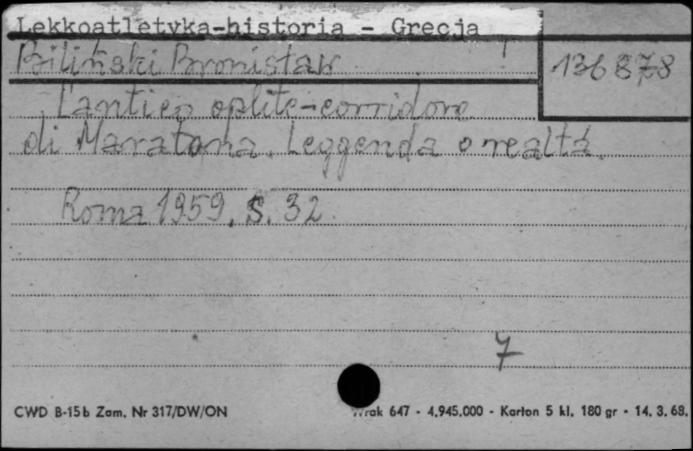 Lekkoatletyka-historia - Grecja
Biliński Bronisław
136 878
L'antico oplite-corridore
di Maratona. Leggenda o realtá.
Roma 1959, S. 32
7
CWD B-15b Zam. Nr 317/DW/ON
647 - 4.945.000 - Karton 5 kl. 180 gr - 14. 3. 68.